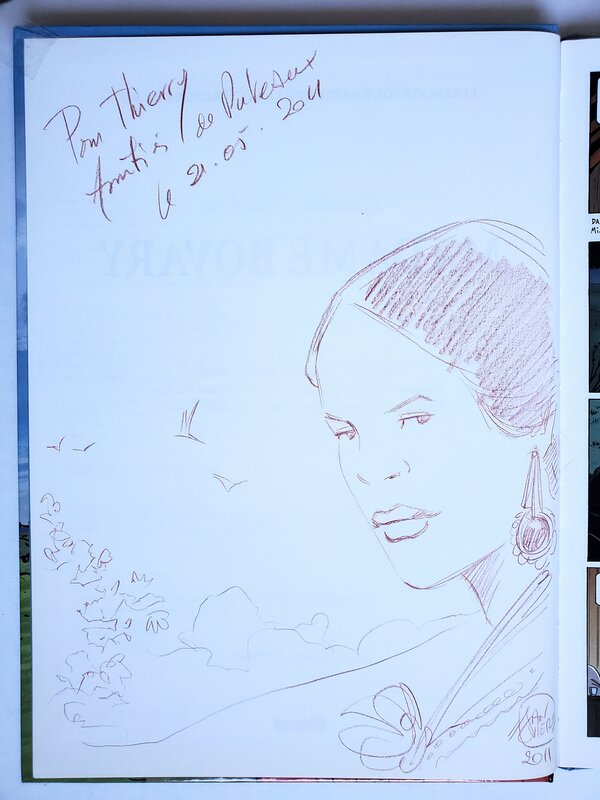 Pour Thierry
Amitiés de Puteaux
le 21.05.2011
MADAME BOVARY
DA
Mi
2011